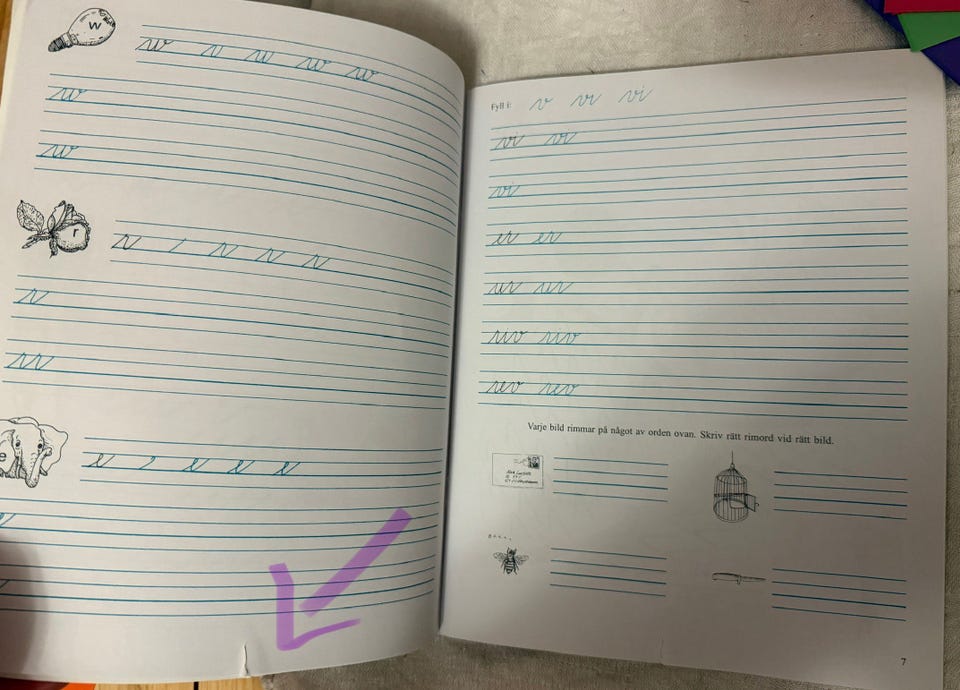 w
w v w w w
w
w
r
r r r r
r
rr
e
e e e e
Fyll i: v vi vi
vi vi
vi
er er
ur ur
riv riv
rev rev
Varje bild rimmar på något av orden ovan. Skriv rätt rimord vid rätt bild.
7